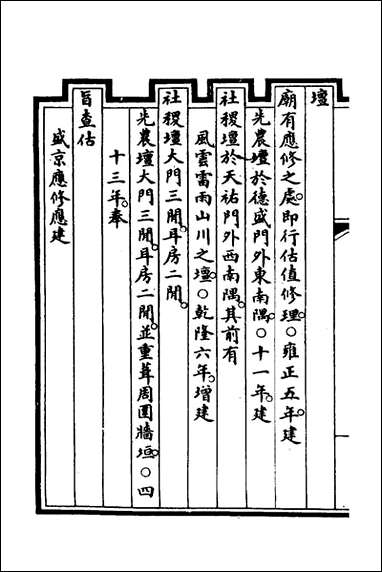 壇
廟有應修之處即行估值修理○雍正五年建
先農壇於德盛門外東南隅○十一年建
社稷壇於天祐門外西南隅其前有
風雲雷雨山川之壇○乾隆六年增建
社稷壇大門三間耳房二間
先農壇大門三間耳房二間並重葺周圍牆垣○四
十三年奉
旨查估
盛京應修應建